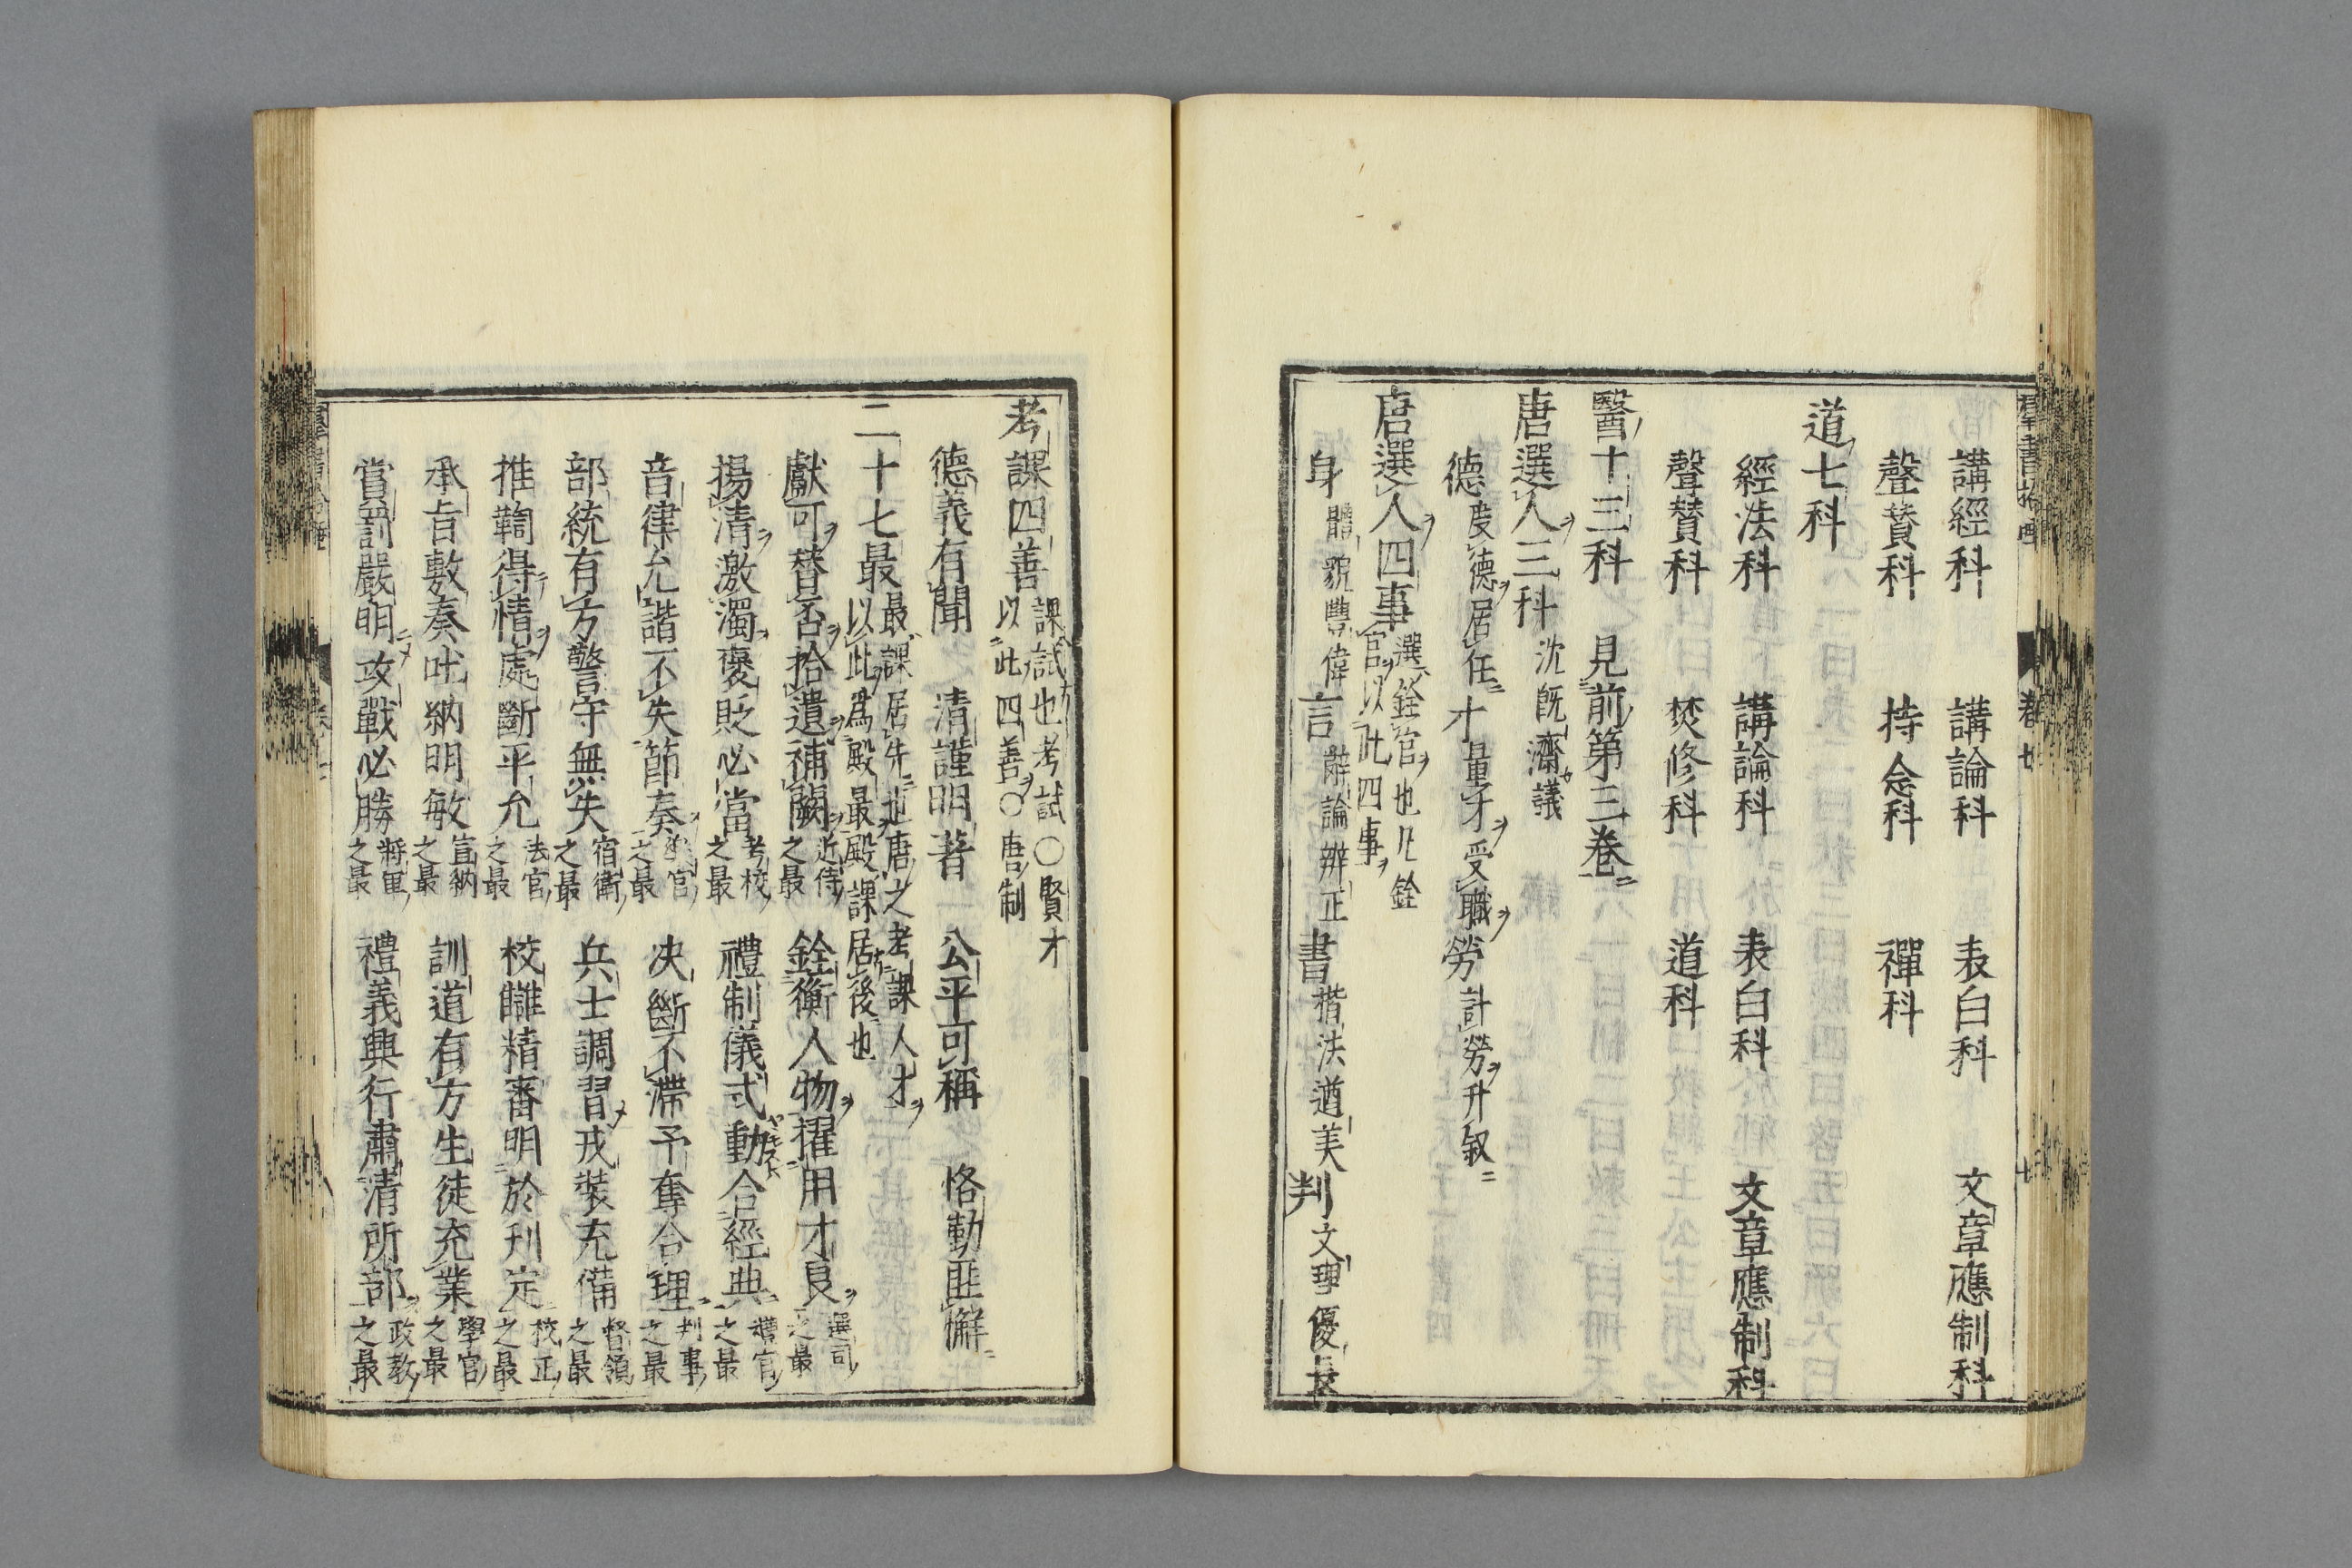 講經科 講論科 表白科 文章應制科
聲賛科 持念科 禪科
道七科
經法科 講論科 表白科 文章應制科
聲賛科 焚修科 道科
醫十三科 見前第三卷
唐選人三科 沈旣濟議
德 度德居任 才 量才受職 勞 計勞升叙
唐選人四事 選ハ銓官ヲ也凢銓
官ヲ以此四事ヲ
身 體貌豊偉 言 辭論辨正 書 楷法遒美 判 文理優長
考課四善 課試也考試○賢才
以此四善ヲ○唐制
德義有聞 清謹明著 公平可稱 恪勤匪懈
二十七最 最課居先也唐之考課人才ヲ
以此爲殿最殿課居後也
獻可替否拾遺補闕 近侍之最 銓衡人物擢用才良 選司之最
揚清激濁褒貶必當 考校之最 禮制儀式動合經典 禮官之最
音律允諧不失節奏 樂官之最 决斷不滯予奪合理 判事之最
部統有方警守無失 宿衛之最 兵士調習戎裝充備 督領之最
推鞫得情處斷平允 法官之最 校讎精審明於刋定 校正之最
承旨敷奏吐納明敏 宣納之最 訓道有方生徒充業 學官之最
賞罰嚴明攻戰必勝 將軍之最 禮義興行肅清所部 政教之最